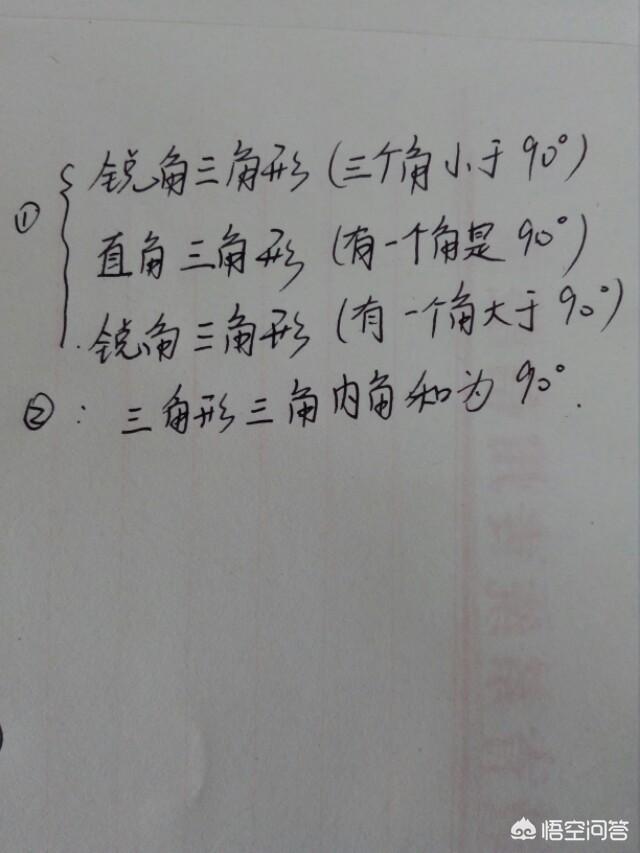 ① 锐角三角形 (三个角小于90°)
直角三角形 (有一个角是90°)
锐角三角形 (有一个角大于90°)
②: 三角形三角内角和为90°.
悟空问答